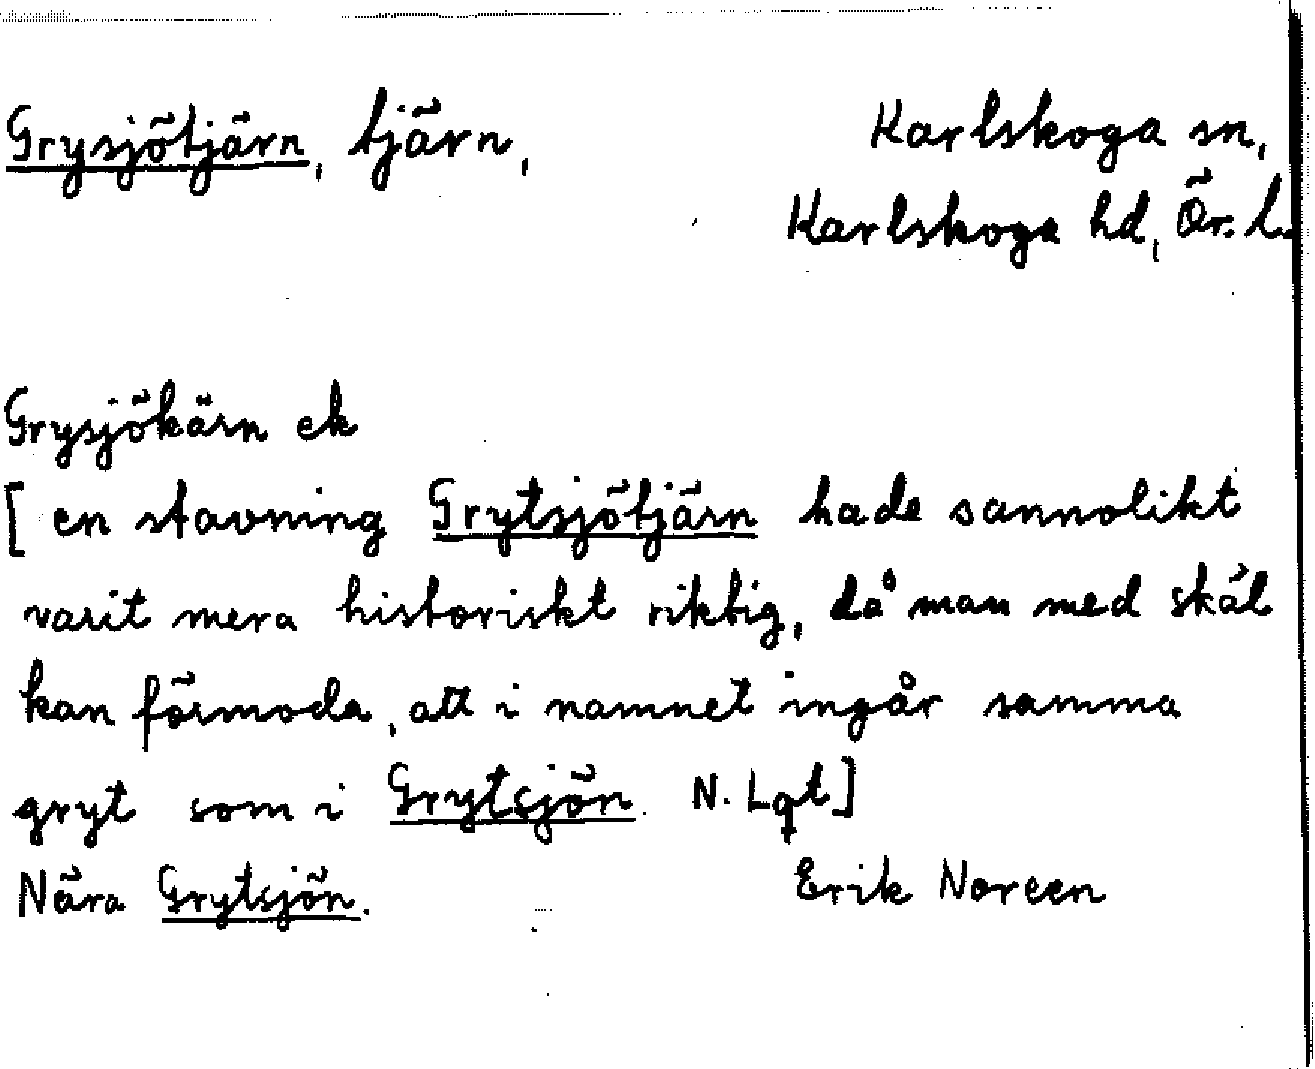 Grysjötjärn, tjärn,
Karlskoga sn,
Karlskoga hd, Ör. l.
Grysjökärn ek
[ en stavning Grytsjötjärn hade sannolikt
varit mera historiskt riktig, då man med skäl
kan förmoda, att i namnet ingår samma
gryt som i Grytsjön. N. Lqt]
Nära Grytsjön.
Erik Noreen